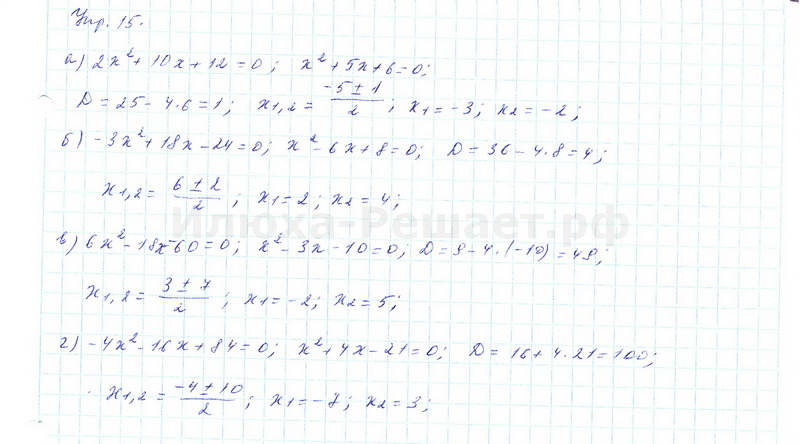 Упр. 15.
а) 2x² + 10x + 12 = 0; x² + 5x + 6 = 0;
D = 25 - 4·6 = 1; x₁,₂ = (-5 ± 1)/2; x₁ = -3; x₂ = -2;
б) -3x² + 18x - 24 = 0; x² - 6x + 8 = 0; D = 36 - 4·8 = 4;
x₁,₂ = (6 ± 2)/2; x₁ = 2; x₂ = 4;
Илюха-Решает.рф
в) 6x² - 18x - 60 = 0; x² - 3x - 10 = 0; D = 9 - 4·(-10) = 49;
x₁,₂ = (3 ± 7)/2; x₁ = -2; x₂ = 5;
г) -4x² - 16x + 84 = 0; x² + 4x - 21 = 0; D = 16 + 4·21 = 100;
x₁,₂ = (-4 ± 10)/2; x₁ = -7; x₂ = 3;